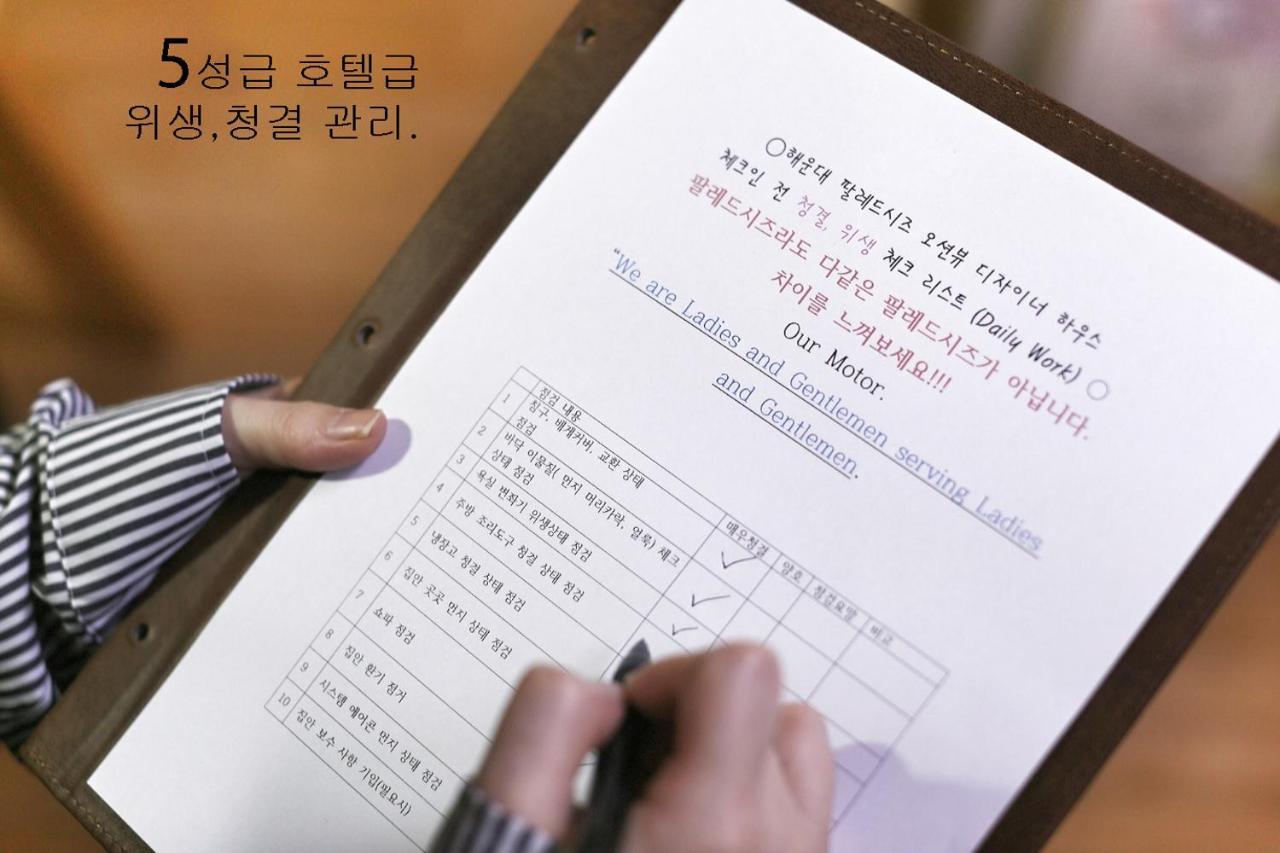 5성급 호텔급
위생,청결 관리.
○해운대 팔레드시즈 오션뷰 디자이너 하우스
체크인 전 청결, 위생 체크 리스트 (Daily Work) ○
팔레드시즈라도 다같은 팔레드시즈가 아닙니다.
차이를 느껴보세요!!!
Our Motor.
"We are Ladies and Gentlemen serving Ladies
and Gentlemen.
점검 내용 매우청결 양호 점검요망 비고
1 침구, 베게커버, 교환 상태
점검
2 바닥 이물질( 먼지 머리카락, 얼룩) 체크
상태 점검
3 욕실 변좌기 위생상태 점검
4 주방 조리도구 청결 상태 점검
5 냉장고 청결 상태 점검
6 집안 곳곳 먼지 상태 점검
7 쇼파 점검
8 집안 환기 점거
9 시스템 에어콘 먼지 상태 점검
10 집안 보수 사항 기입(필요시)